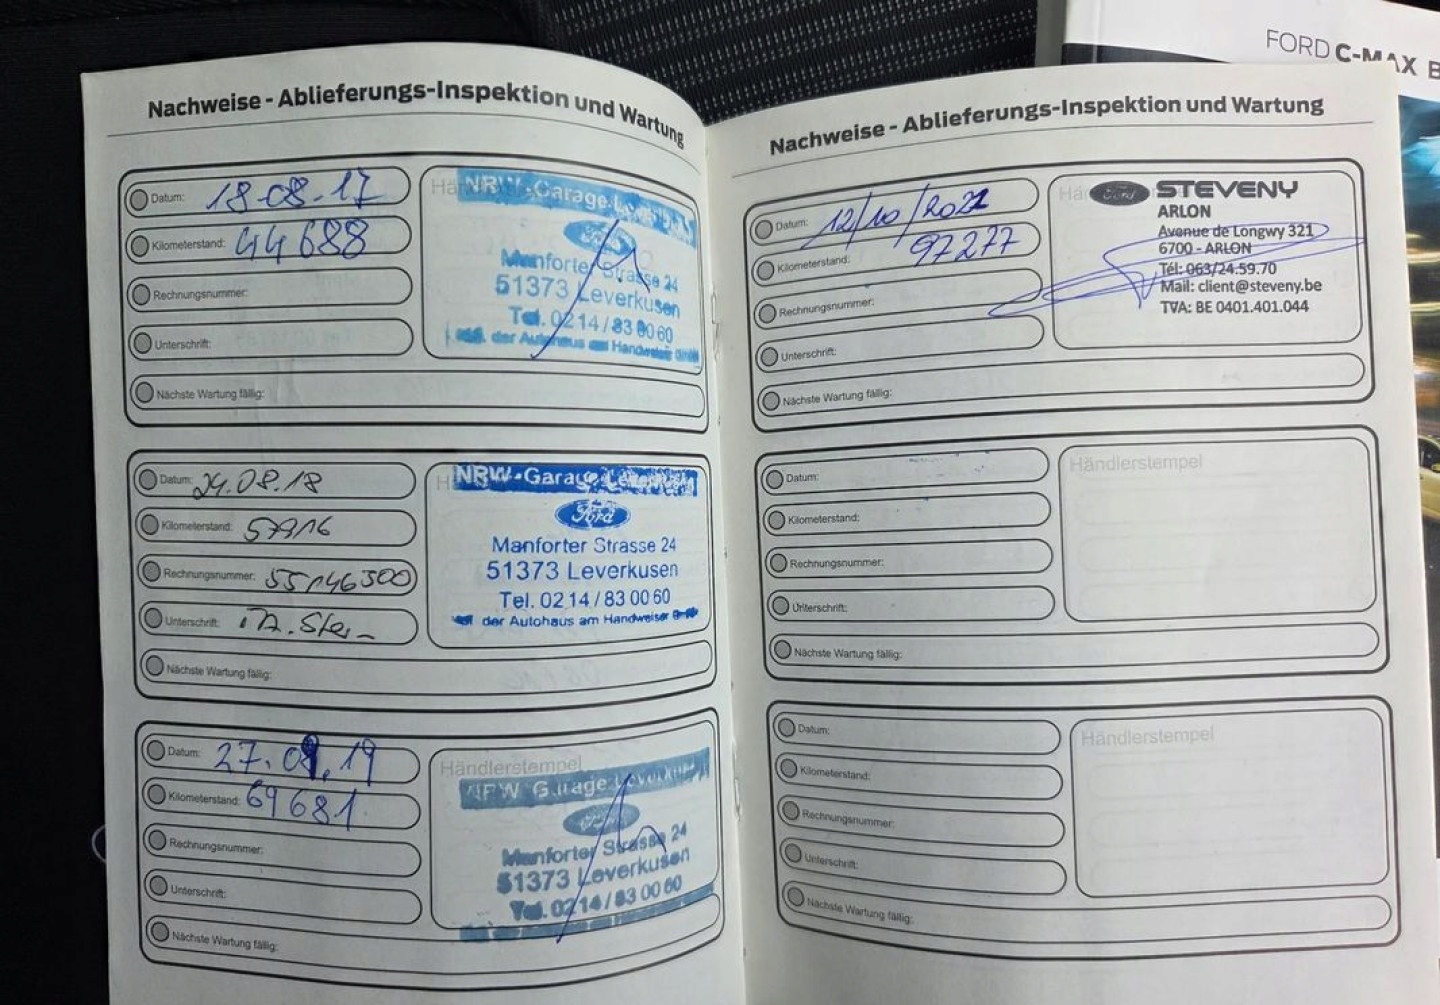 FORD C-MAX B
Nachweise - Ablieferungs-Inspektion und Wartung
Datum: 18.08.17
Kilometerstand: 44688
Rechnungsnummer:
Unterschrift:
Nächste Wartung fällig:
NRW-Garage
Ford
Manforter Strasse 24
51373 Leverkusen
Tel. 0214/83 00 60
der Autohaus am Handweiser
Datum: 29.08.18
Kilometerstand: 57916
Rechnungsnummer: 55146300
Unterschrift:
Nächste Wartung fällig:
NRW-Garage Leverkusen
Ford
Manforter Strasse 24
51373 Leverkusen
Tel. 02 14 / 83 00 60
der Autohaus am Handweiser
Datum: 27.08.19
Kilometerstand: 69681
Rechnungsnummer:
Unterschrift:
Nächste Wartung fällig:
Händlerstempel
NRW Garage Leverkusen
Ford
Manforter Strasse 24
51373 Leverkusen
Tel. 0214/83 00 60
Nachweise - Ablieferungs-Inspektion und Wartung
Datum: 12/10/2021
Kilometerstand: 97277
Rechnungsnummer:
Unterschrift:
Nächste Wartung fällig:
Ford STEVENY
ARLON
Avenue de Longwy 321
6700 - ARLON
Tél: 063/24.59.70
Mail: client@steveny.be
TVA: BE 0401.401.044
Datum:
Kilometerstand:
Rechnungsnummer:
Unterschrift:
Nächste Wartung fällig:
Händlerstempel
Datum:
Kilometerstand:
Rechnungsnummer:
Unterschrift:
Nächste Wartung fällig:
Händlerstempel